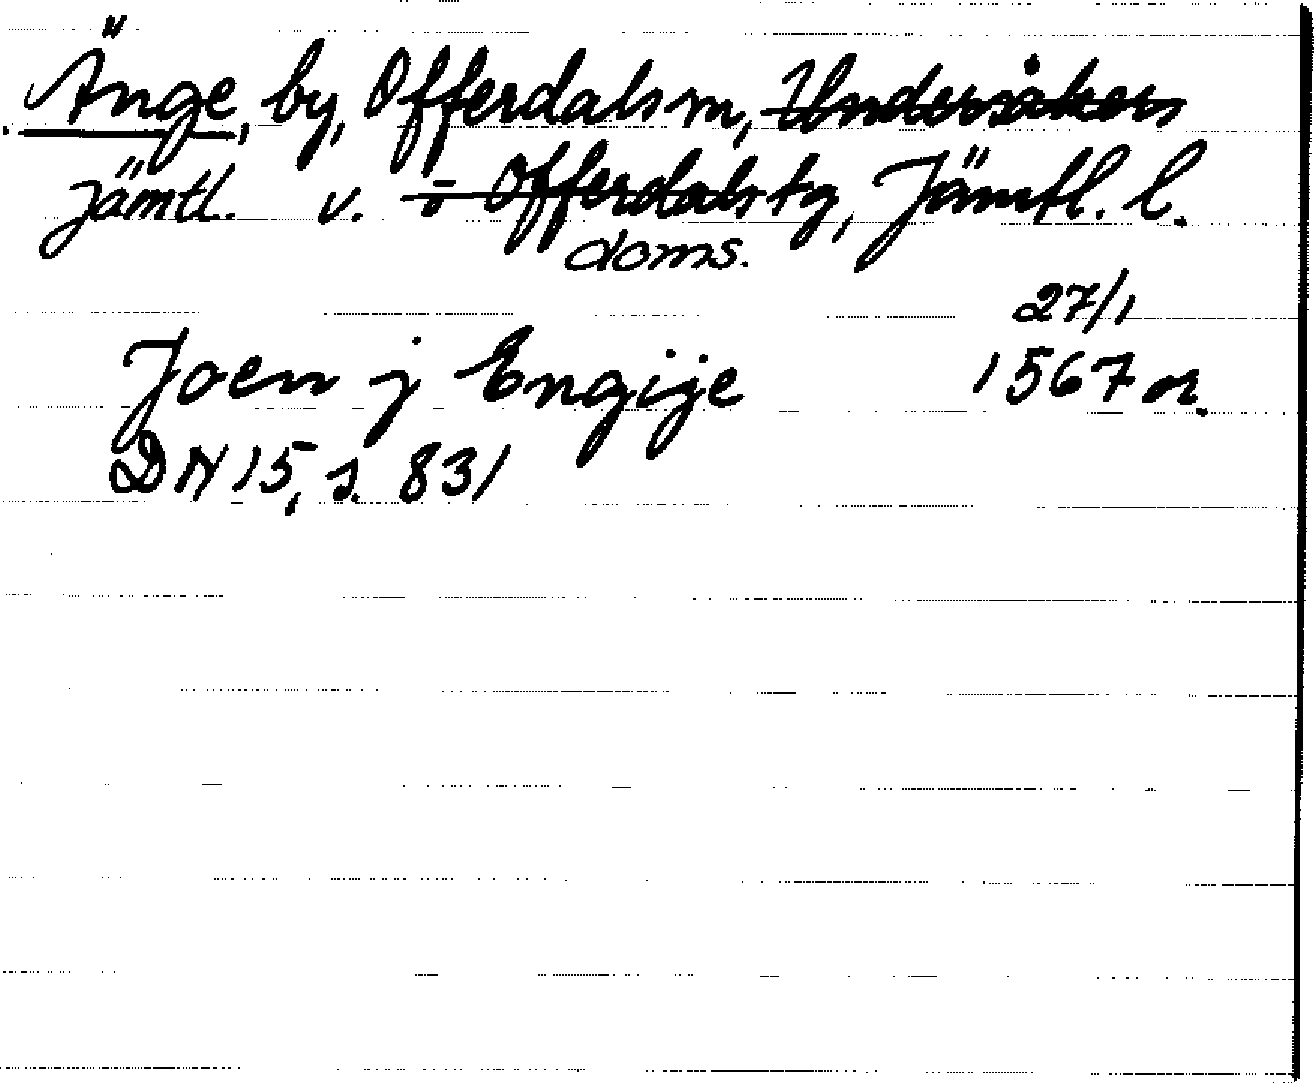 Änge, by, Offerdals sn, Undersåkers
Jämtl. v. o Offerdals tg, Jämtl. l.
doms.
27/1
Joen j Engije 1567 or.
DN 15, s. 831